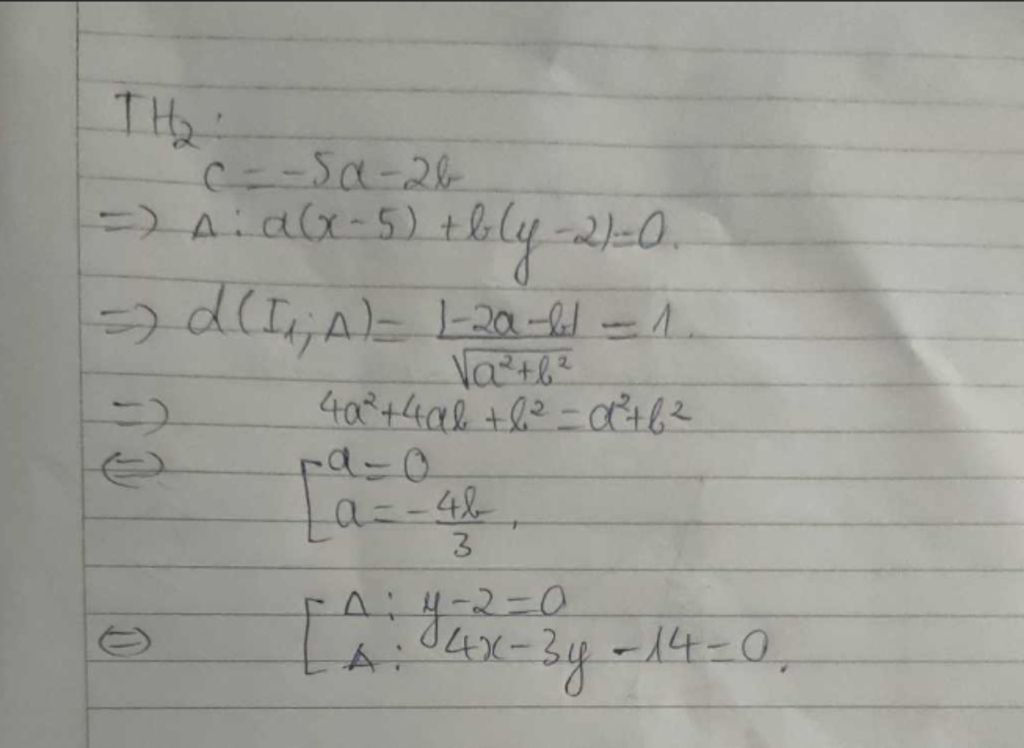 TH₂:
c = -5a - 2b
=> Δ: a(x-5) + b(y-2)=0.
=> d(I₁; Δ) = |-2a-b| / √(a²+b²) = 1.
=> 4a²+4ab+b² = a²+b²
<=> [ a = 0
a = -4b/3,
<=> [ Δ: y-2=0
Δ: 4x-3y-14=0.